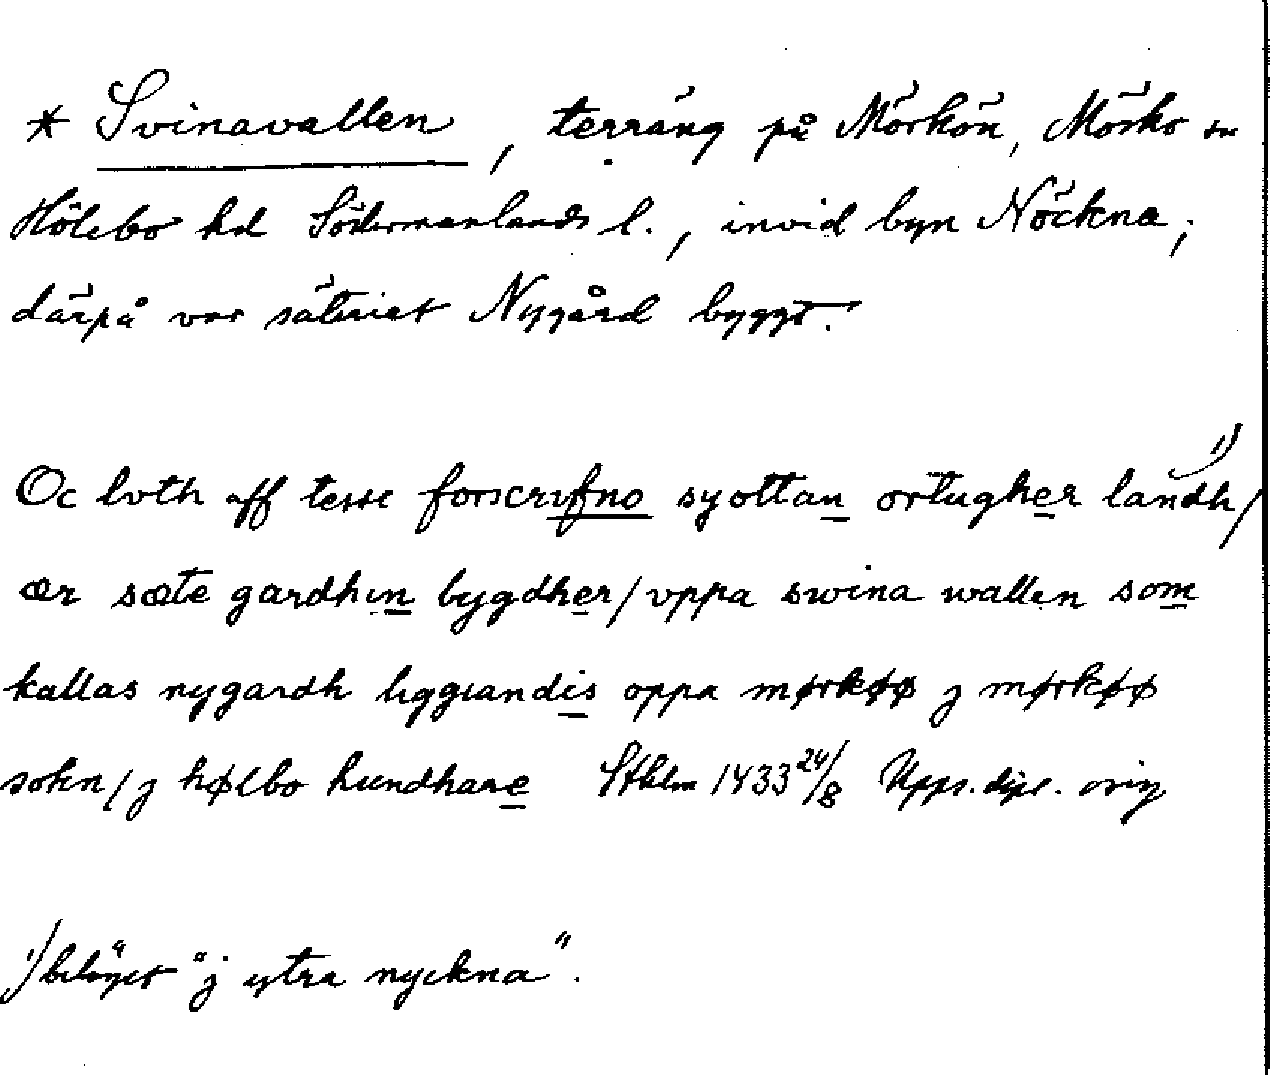 * Svinavallen, terräng på Mörkön, Mörkö sn
Hölebo hd Södermanlands l., invid byn Nöckna;
därpå var säteriet Nygård byggt.
Oc lvth aff tesse forscrifno syottan ortugher landh/ 1)
ær sæte gardhin bygdher/vppa swina wallen som
kallas nygardh liggiandis oppa mørkøø j mørkøø
sokn/j hølbo hundhare Sthlm 1433 24/8 Upps. dipl. orig
1) beläget "j ytra nyckna".